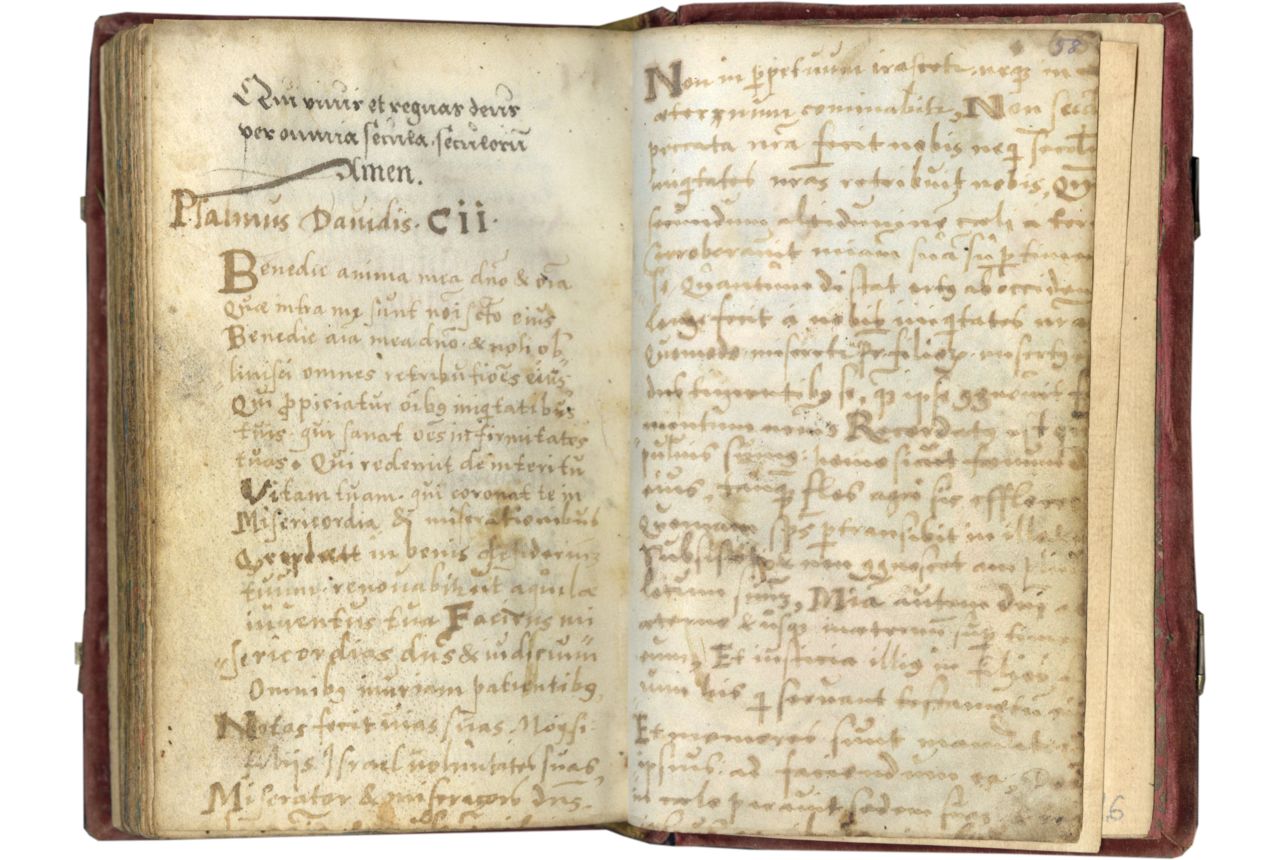 Qui viuis et regnas deus
per omnia secula seculorū
Amen.
Psalmus Dauidis. Cii.
Benedic anima mea dn̄o & oīa
Quæ intra mę sunt nōi scto eius
Benedic aīa mea dn̄o. & noli ob
liuisci omnes retributiōes eius
Qui ꝓpiciatur oībꝰ iniqtatibus
tuis. qui sanat oēs infirmitates
tuas. Qui redemit de interitu
Vitam tuam. qui coronat te in
Misericordia & miserationibus
in bonis desideriūm
tuum. renouabitr ut aquila
iuuentus tua Faciens mi
sericordias dn̄s & iudicium
Omnibꝰ iniuriam patientibꝰ
Notas fecit uias suas Moysi
filijs Israel uoluntates suas
Miserator & misericors dn̄s.
58
Non in ꝑpetuum irascetr. neqꝫ in
æternum cominabitr, Non
peccata nr̄a fecit nobis neqꝫ
iniqtates nr̄as retribuit nobis,
secundum altitudinem celi a
corroborauit miam̄ suā sup̄
se Quantum distat ortꝰ ab occiden
longe fecit a nobis iniqtates nr̄a
Quomodo miseretr pr̄ filioꝝ. misertꝰ
dn̄s timentibꝰ se, qꝫ ipse ꝯgnouit
mentum
Recordatꝰ
puluis sumꝰ. homo sicut
eius, tanqꝫ flos agri sic
Quoniam sps ꝑtransibit in illo
subsistet & non ꝯgnoscet am
locum suum, Mia autem dn̄i
æterno & usqꝫ in æternum sup̄
eum, Et iusticia illiꝰ in filios
um his qi seruant testametū
Et memores sunt
ipsius. ad faciendum ea,
in celo parauit sedem
16